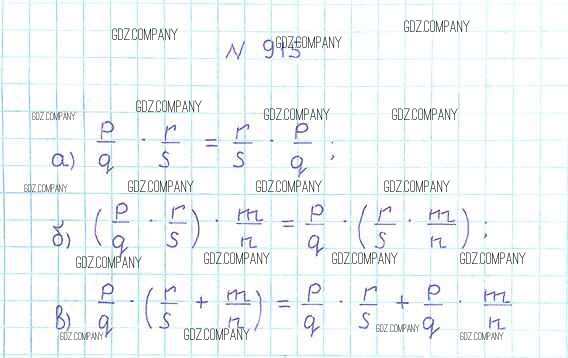 GDZ.COMPANY GDZ.COMPANY GDZ.COMPANY
N 915
GDZ.COMPANY GDZ.COMPANY GDZ.COMPANY GDZ.COMPANY
а) p/q · r/s = r/s · p/q ;
GDZ.COMPANY GDZ.COMPANY GDZ.COMPANY GDZ.COMPANY
б) (p/q · r/s) · m/n = p/q · (r/s · m/n) ;
GDZ.COMPANY GDZ.COMPANY GDZ.COMPANY GDZ.COMPANY
в) p/q · (r/s + m/n) = p/q · r/s + p/q · m/n
GDZ.COMPANY GDZ.COMPANY GDZ.COMPANY GDZ.COMPANY